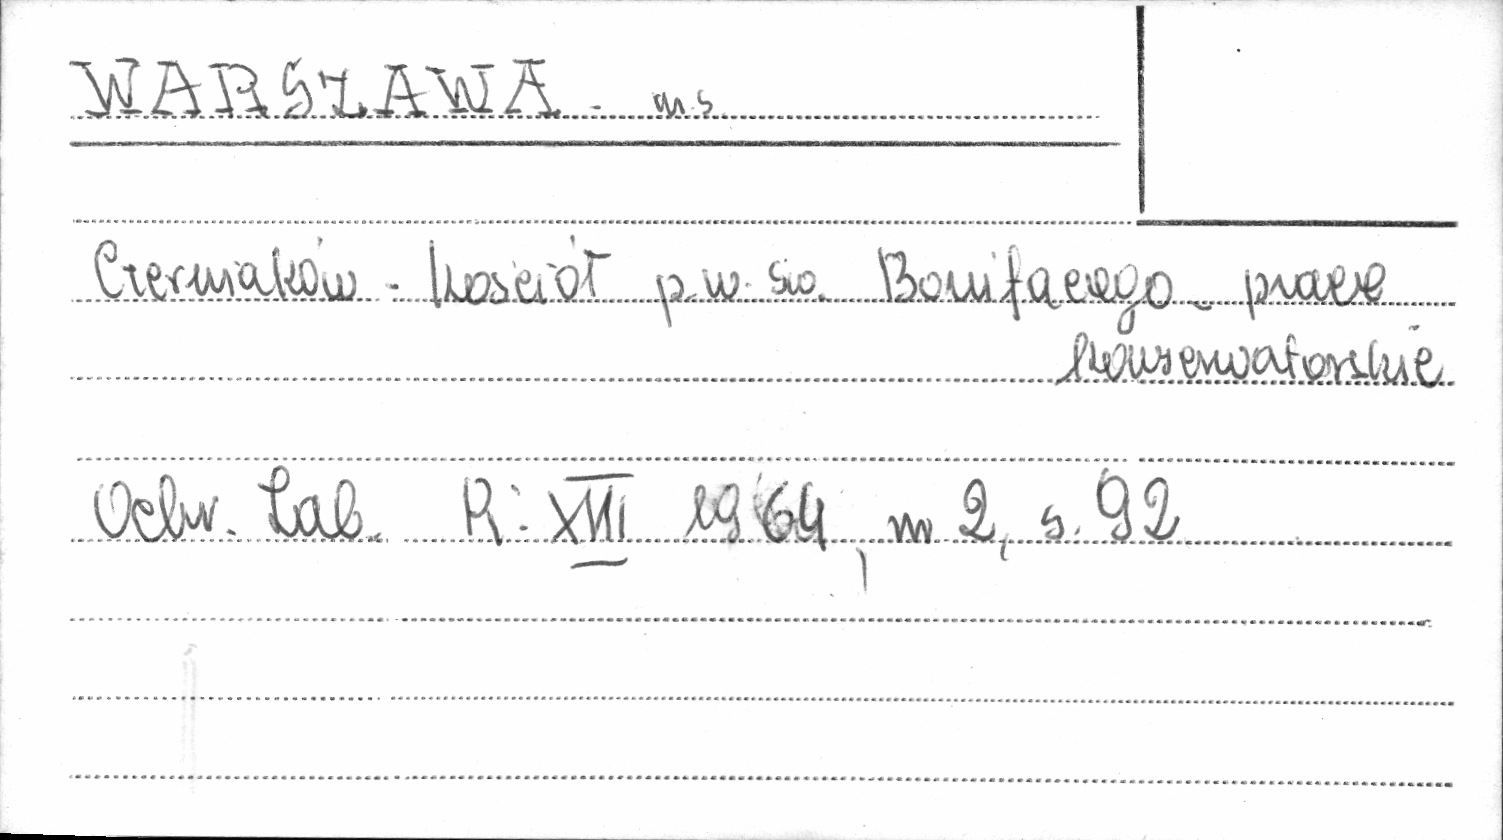 WARSZAWA - m.s.
Czerniaków - kościół p.w. św. Bonifacego - prace
konserwatorskie
Ochr. Zab. R: XVII 1964, nr 2, s. 92